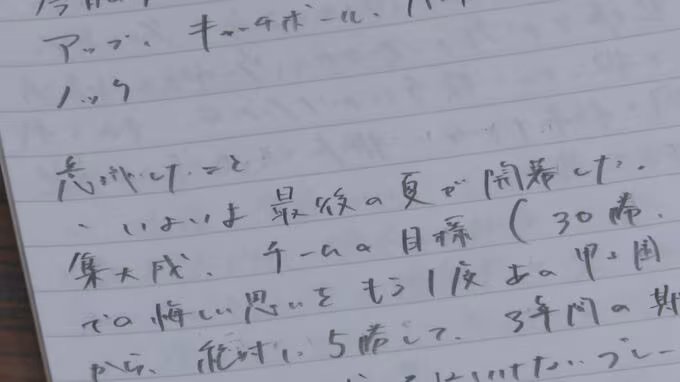 アップ、キャッチボール、
ノック
意識したこと
・いよいよ最後の夏が開幕した。
集大成、チームの目標(30勝、
での悔しい思いをもう1度あの甲子園
から、絶対に5勝して、3年間の期
プレー